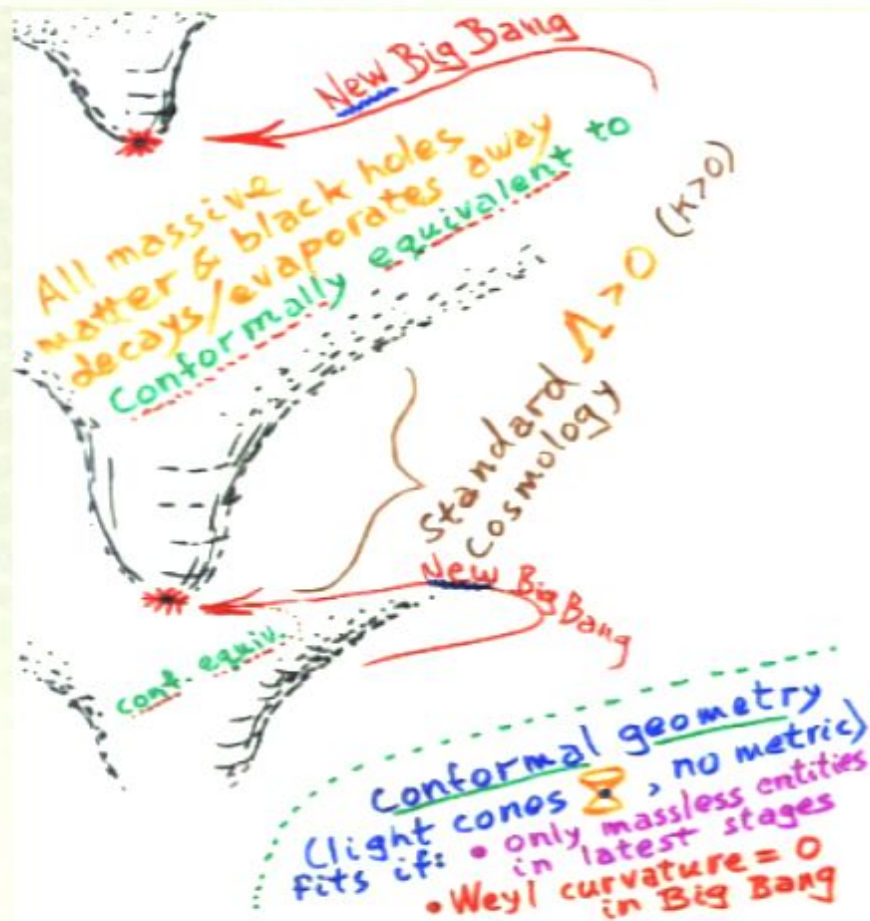 New Big Bang
All massive
matter & black holes
decays/evaporates away
Conformally equivalent to
Standard Λ > 0 (K>0)
cosmology
New Big Bang
conf. equiv.
conformal geometry
(light cones , no metric)
fits if: • only massless entities
in latest stages
• Weyl curvature = 0
in Big Bang